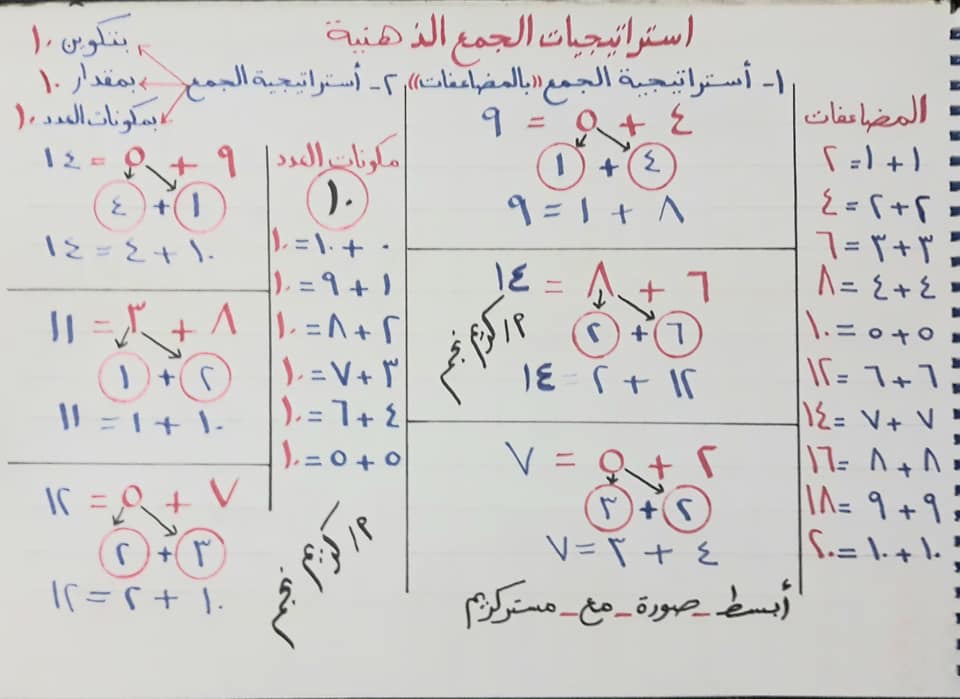 استراتيجيات الجمع الذهنية
١- أستراتيجية الجمع ((بالمضاعفات))
٢- أستراتيجية الجمع
بتكوين ١٠
بمقدار ١٠
بمكونات العدد ١٠
المضاعفات
١ + ١ = ٢
٢ + ٢ = ٤
٣ + ٣ = ٦
٤ + ٤ = ٨
٥ + ٥ = ١٠
٦ + ٦ = ١٢
٧ + ٧ = ١٤
٨ + ٨ = ١٦
٩ + ٩ = ١٨
١٠ + ١٠ = ٢٠
٤ + ٥ = ٩
٤ + ١
٨ + ١ = ٩
٦ + ٨ = ١٤
٦ + ٢
١٢ + ٢ = ١٤
م/ كريم نجم
٢ + ٥ = ٧
٢ + ٣
٤ + ٣ = ٧
أبسط_صورة_مع_مستر كريم
مكونات العدد
١٠
٠ + ١٠ = ١٠
١ + ٩ = ١٠
٢ + ٨ = ١٠
٣ + ٧ = ١٠
٤ + ٦ = ١٠
٥ + ٥ = ١٠
م/ كريم نجم
٩ + ٥ = ١٤
١ + ٤
١٠ + ٤ = ١٤
٨ + ٣ = ١١
٢ + ١
١٠ + ١ = ١١
٧ + ٥ = ١٢
٣ + ٢
١٠ + ٢ = ١٢